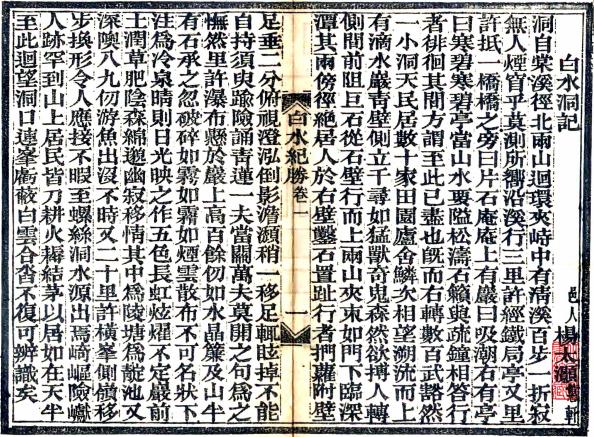 白水洞記
邑人 楊大灝 軒
洞自棠溪徑北兩山迴環夾峙中有淸溪百步一折寂
無人煙窅乎莫測所嚮沿溪行三里許經鐵局亭又里
許抵一橋橋之旁曰片石庵庵上有巖曰吸潮右有亭
曰寒碧寒碧亭當山水要隘松濤石籟與疏鐘相答行
者徘徊其間方謂至此已盡也旣而右轉數百武豁然
一小洞天民居數十家田園廬舍鱗次相望溯流而上
有滴水巖靑壁側立千尋如猛獸奇鬼森然欲搏人轉
側間前阻巨石從石壁行而上兩山夾束如門下臨深
潭其兩傍徑絕居人於右壁鑿石置趾行者捫蘿附壁
白水紀勝 卷一 一
足垂二分俯視澄泓倒影澹灝稍一移足輒眩掉不能
自持須臾踰險誦靑蓮一夫當關萬夫莫開之句爲之
憮然里許瀑布懸於巖上高百餘仞如水晶簾及山半
有石承之忽破碎如霧如霧如煙雲散布不可名狀下
注爲冷泉晴則日光映之作五色長虹炫燿不定巖前
土潤草肥陰森綿邈幽寂移情其中爲陵塘爲池又
深隩八九仞游魚出沒不時又二十里許橫峯側嶺移
步換形令人應接不暇至螺絲洞水源出焉崎嶇險巇
人跡罕到山上居民皆刀耕火耨結茅以居如在天半
至此迴望洞口連峯虧蔽白雲合沓不復可辨識矣